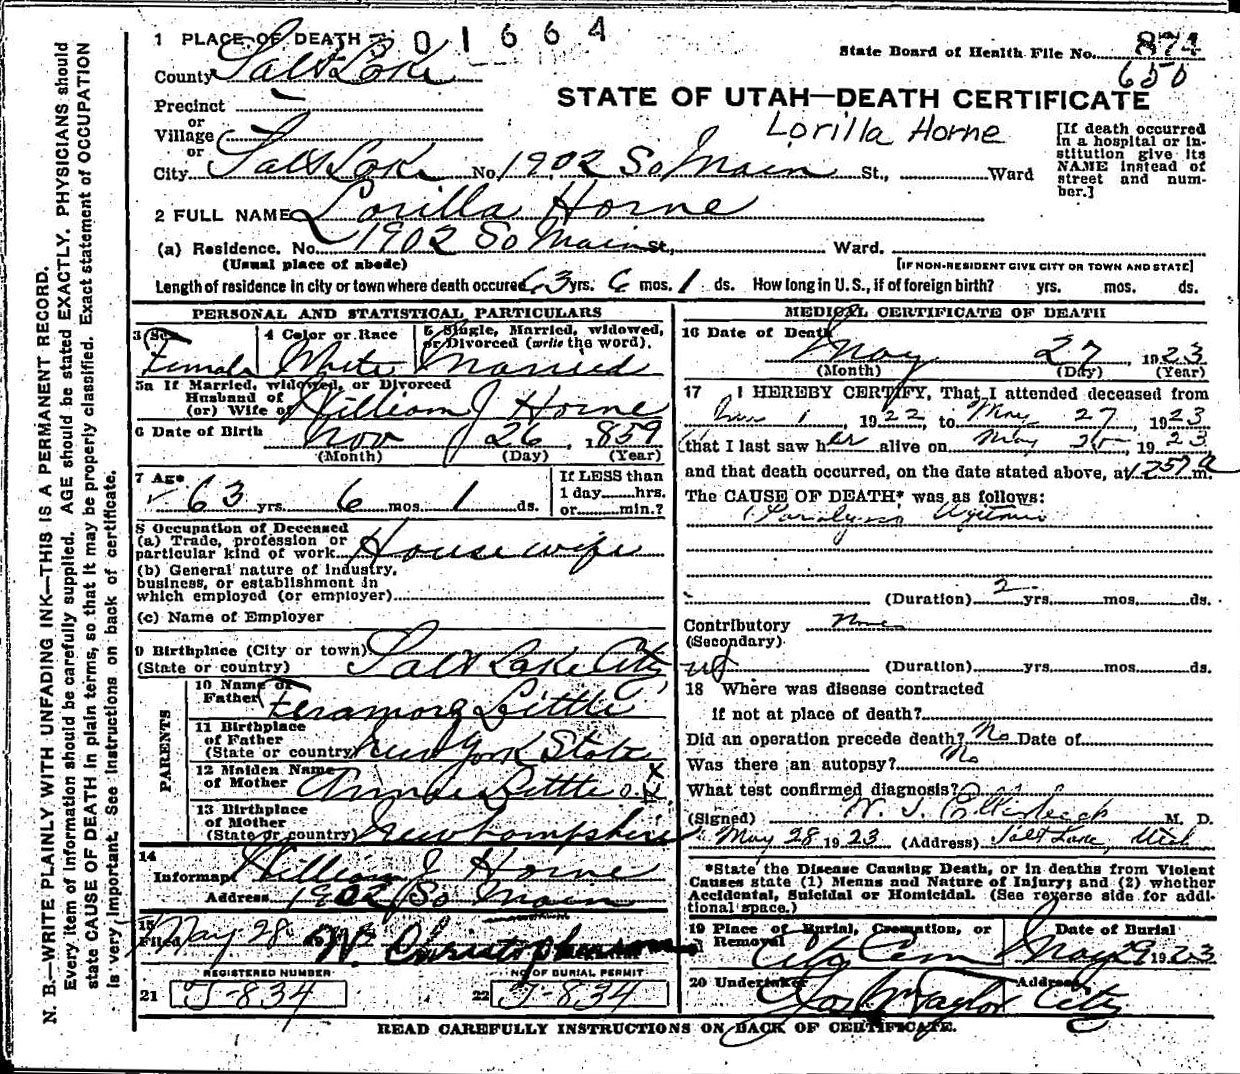 1 PLACE OF DEATH 01664
State Board of Health File No. 874
650
County Salt Lake
STATE OF UTAH—DEATH CERTIFICATE
Precinct
or
Village
or
Lorilla Horne
[If death occurred in a hospital or institution give its NAME instead of street and number.]
City Salt Lake No. 1902 So Main St., Ward
2 FULL NAME Lorilla Horne
(a) Residence. No. 1902 So Main St., Ward.
(Usual place of abode) [IF NON-RESIDENT GIVE CITY OR TOWN AND STATE]
Length of residence in city or town where death occured 63 yrs. 6 mos. 1 ds. How long in U.S., if of foreign birth? yrs. mos. ds.
PERSONAL AND STATISTICAL PARTICULARS
3 Sex
Female
4 Color or Race
White
5 Single, Married, widowed, or Divorced (write the word).
Married
5a If Married, widowed, or Divorced
Husband of
(or) Wife of William J Horne
6 Date of Birth Nov 26, 1859
(Month) (Day) (Year)
7 Age 63 yrs. 6 mos. 1 ds.
If LESS than
1 day......hrs.
or......min.?
8 Occupation of Deceased
(a) Trade, profession or
particular kind of work Housewife
(b) General nature of industry,
business, or establishment in
which employed (or employer)
(c) Name of Employer
9 Birthplace (City or town)
(State or country) Salt Lake City
PARENTS
10 Name of
Father Feramorz Little
11 Birthplace
of Father
(State or country) New York State
12 Maiden Name
of Mother Annie Little
13 Birthplace
of Mother
(State or country) New hampshire
14
Informant William J Horne
Address 1902 So Main
15
Filed May 28 W. Christophersen
REGISTERED NUMBER NO OF BURIAL PERMIT
21 J-834 22 J-834
MEDICAL CERTIFICATE OF DEATH
16 Date of Death
May 27 1923
(Month) (Day) (Year)
17 I HEREBY CERTIFY, That I attended deceased from
1, 1922, to May 27, 1923
that I last saw her alive on May 1923
and that death occurred, on the date stated above, at m.
The CAUSE OF DEATH* was as follows:
Paralysis Agitans
(Duration) 2 yrs. mos. ds.
Contributory None
(Secondary)
(Duration) yrs. mos. ds.
18 Where was disease contracted
If not at place of death?
Did an operation precede death? No Date of
Was there an autopsy? No
What test confirmed diagnosis?
(Signed) W. J. M. D.
May 28 1923 (Address) Salt Lake, Utah
*State the Disease Causing Death, or in deaths from Violent
Causes state (1) Means and Nature of Injury; and (2) whether
Accidental, Suicidal or Homicidal. (See reverse side for addi-
tional space.)
19 Place of Burial, Cremation, or Removal Date of Burial
City Cem May 29 1923
20 Undertaker Address
Taylor City
READ CAREFULLY INSTRUCTIONS ON BACK OF CERTIFICATE.
N. B.—WRITE PLAINLY WITH UNFADING INK—THIS IS A PERMANENT RECORD.
Every item of information should be carefully supplied. AGE should be stated EXACTLY. PHYSICIANS should
state CAUSE OF DEATH in plain terms, so that it may be properly classified. Exact statement of OCCUPATION
is very important. See Instructions on back of certificate.